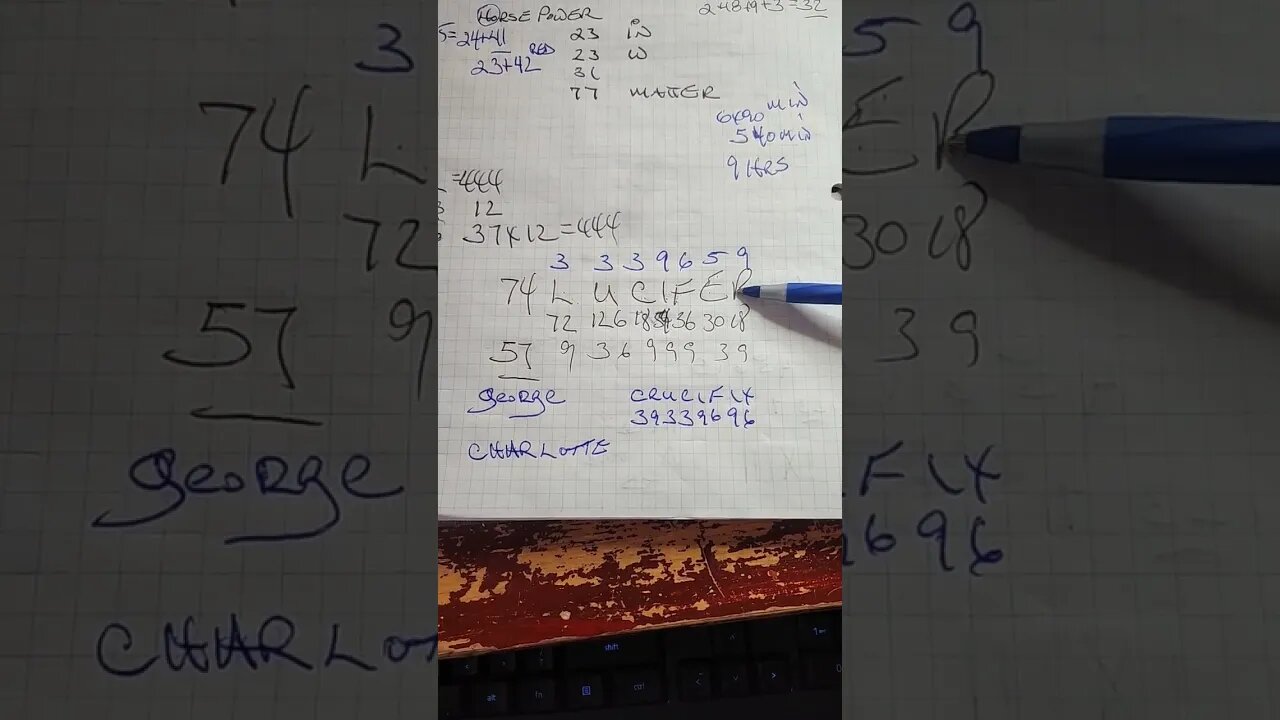 HORSE POWER
2+18+9+3=32
5=24+41
23 iN
RED
23+42
23 W
31
77 MATTER
6x90 MIN
540 MIN
9 HRS
=444
12
37x12=444
3 3 3 9 6 5 9
74 L U C I F E R
72 126 18 54 36 30 18
57 9 36 9 9 9 3 9
george CRUCIFIX
39339696
CHARLOTTE
shift
alt fn ctrl